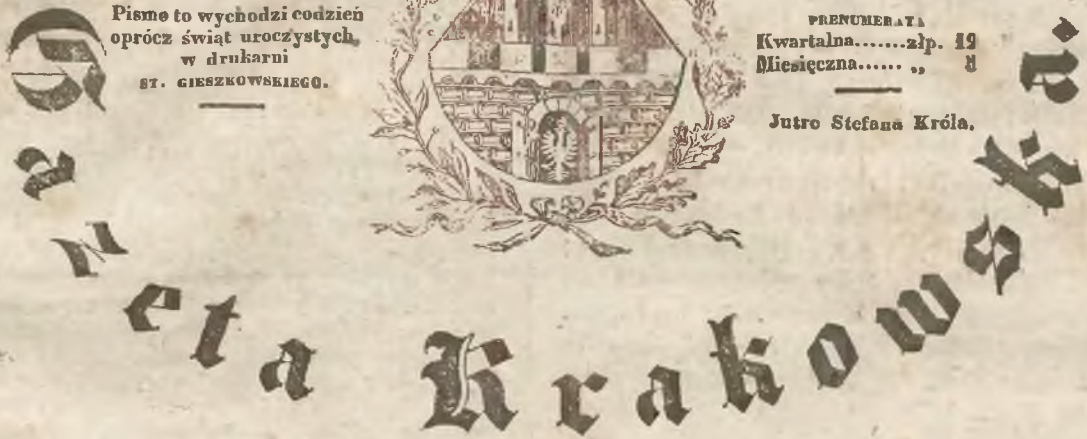 Pismo to wychodzi codzień
oprócz świąt uroczystych,
w drukarni
ST. GIESZKOWSKIEGO.
PRENUMERATA
Kwartalna.......złp. 12
Miesięczna...... „
Jutro Stefana Króla.
Gazeta Krakowska.